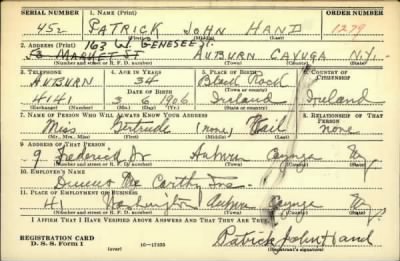 SERIAL NUMBER 1. NAME (Print) ORDER NUMBER
452 PATRICK JOHN HAND 1279
(First) (Middle) (Last)
2. ADDRESS (Print) 163 W. GENESEE St.
MARKET ST AUBURN CAYUGA N.Y.
(Number and street or R. F. D. number) (Town) (County) (State)
3. TELEPHONE 4. AGE IN YEARS 5. PLACE OF BIRTH 6. COUNTRY OF CITIZENSHIP
AUBURN 34 Black Rock
DATE OF BIRTH (Town or county)
4141 3 6 1906 Ireland Ireland
(Exchange) (Number) (Mo.) (Day) (Yr.) (State or country)
7. NAME OF PERSON WHO WILL ALWAYS KNOW YOUR ADDRESS 8. RELATIONSHIP OF THAT PERSON
Miss Gertrude (none) none
(Mr., Mrs., Miss) (First) (Middle) (Last)
9. ADDRESS OF THAT PERSON
9 Frederick Auburn Cayuga Ny
(Number and street or R. F. D. number) (Town) (County) (State)
10. EMPLOYER'S NAME
Mc Carthy Inc.
11. PLACE OF EMPLOYMENT OR BUSINESS
41 Washington Auburn Cayuga Ny
(Number and street or R. F. D. number) (Town) (County) (State)
I AFFIRM THAT I HAVE VERIFIED ABOVE ANSWERS AND THAT THEY ARE TRUE.
REGISTRATION CARD Patrick John Hand
D. S. S. FORM 1 (over) 16—17105 (Registrant's signature)